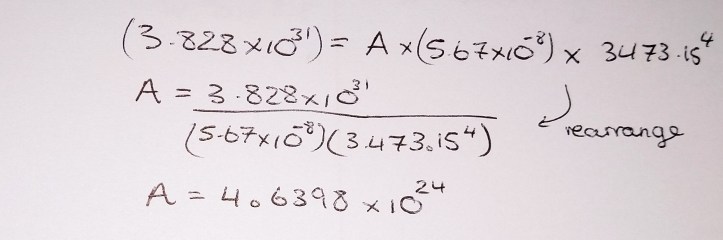 (3.828×10³¹) = A×(5.67×10⁻⁸) × 3473.15⁴
A = 3.828×10³¹
(5.67×10⁻⁸)(3.473.15⁴)
rearrange
A = 4.6398 ×10²⁴